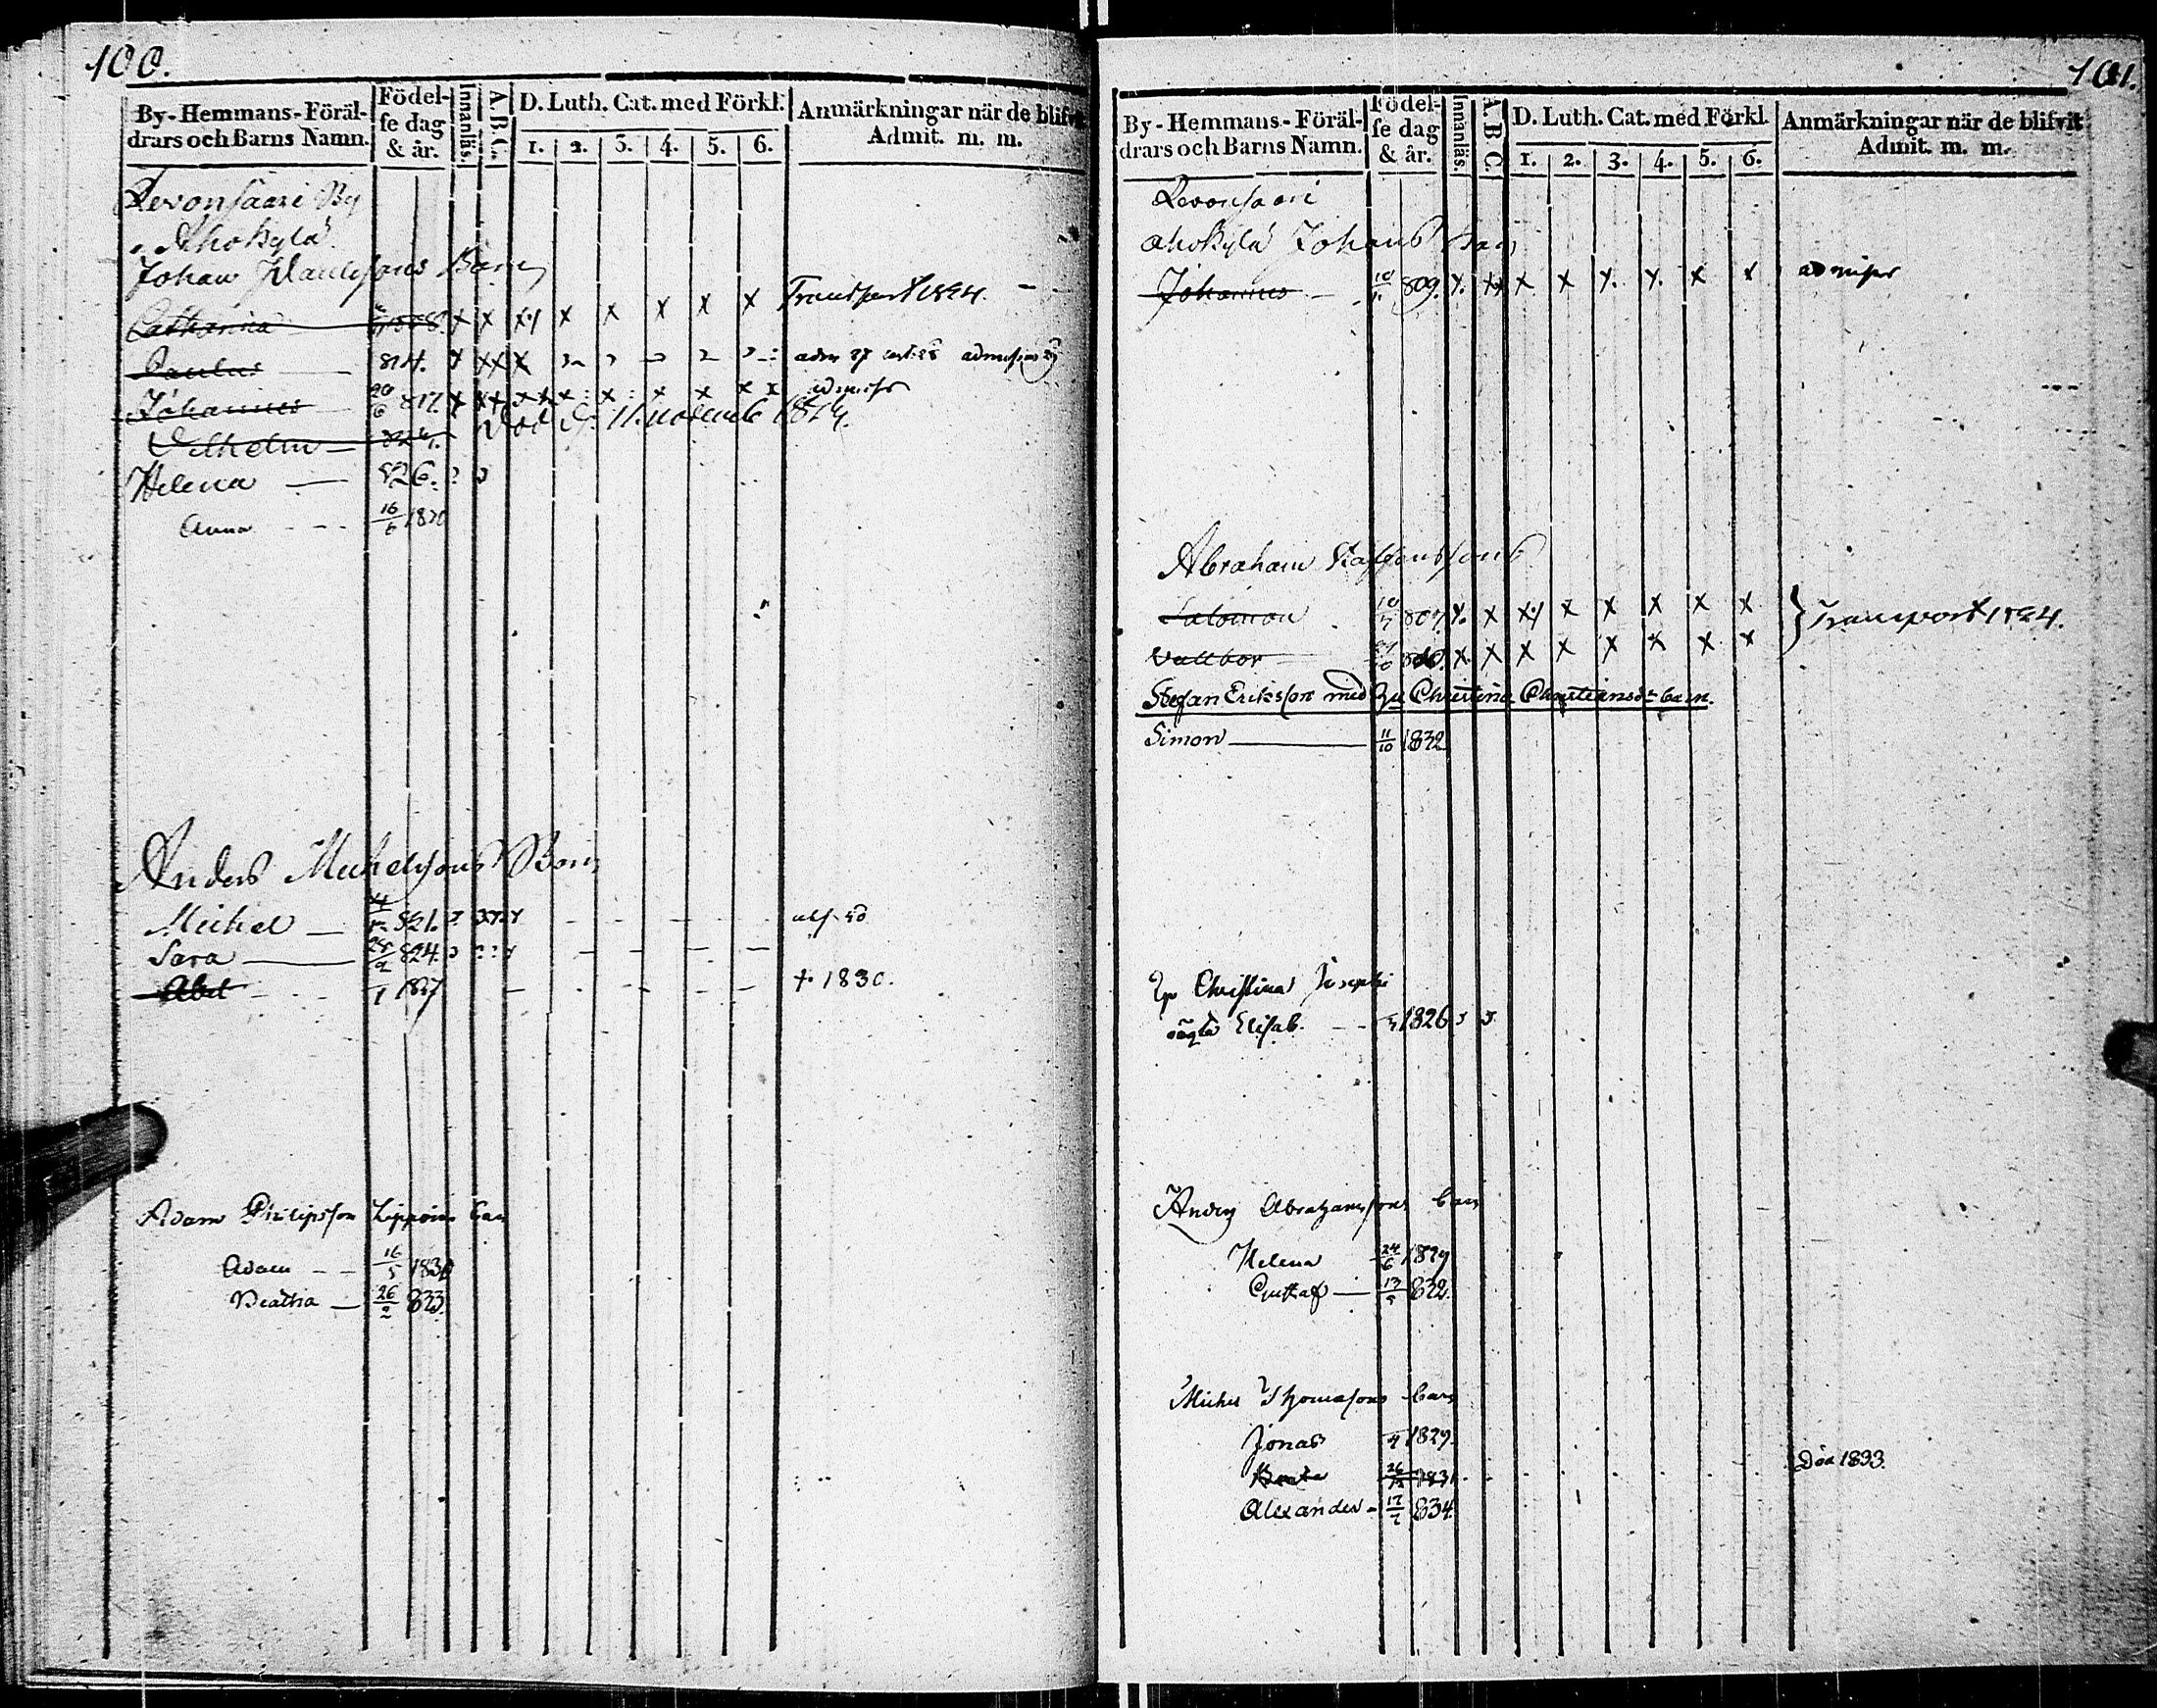 100.
By-Hemmans-Föräl-
drars och Barns Namn.
Födel-
se dag
& år.
Innanläs.
A. B. C.
D. Luth. Cat. med Förkl.
1. 2. 3. 4. 5. 6.
Anmärkningar när de blifvit
Admit. m. m.
Revonsaari By
Ahokylä
Johan Paulssons Barn
Catharina x x x x x x x x Transport 1824.
Paulus 814.
Johannes 20/6 817. x x x x x admiss
Vilhelm 824. Död d. 11. novemb 1824.
Helena 826.
Anna 16/6 1830
Anders Michelsons Barn
Michel 821.
Sara 824.
Abel 1827 † 1830.
Adam Philipsson Lippoin barn
Adam 16/5 1830
Beatha 26/2 833.
101.
By-Hemmans-Föräl-
drars och Barns Namn.
Födel-
se dag
& år.
Innanläs.
A. B. C.
D. Luth. Cat. med Förkl.
1. 2. 3. 4. 5. 6.
Anmärkningar när de blifvit
Admit. m. m.
Revonsaari
Ahokylä Johans barn
Johannes 809. x x x x
Abraham Staffanssons
Salomon 807. x x x x x x } Transport 1824.
Vallbor x x x x x x x x
Stefan Eriksson med Christina Christiansdr barn.
Simon 11/10 1832
Christina Josephi
oägta Elisab. 1826
Anders Abrahamssons barn
Helena 24/6 1829
Gustaf 832.
Michel Thomasons barn
Jonas 1829.
26 1831 Död 1833.
Alexander 17/7 834.